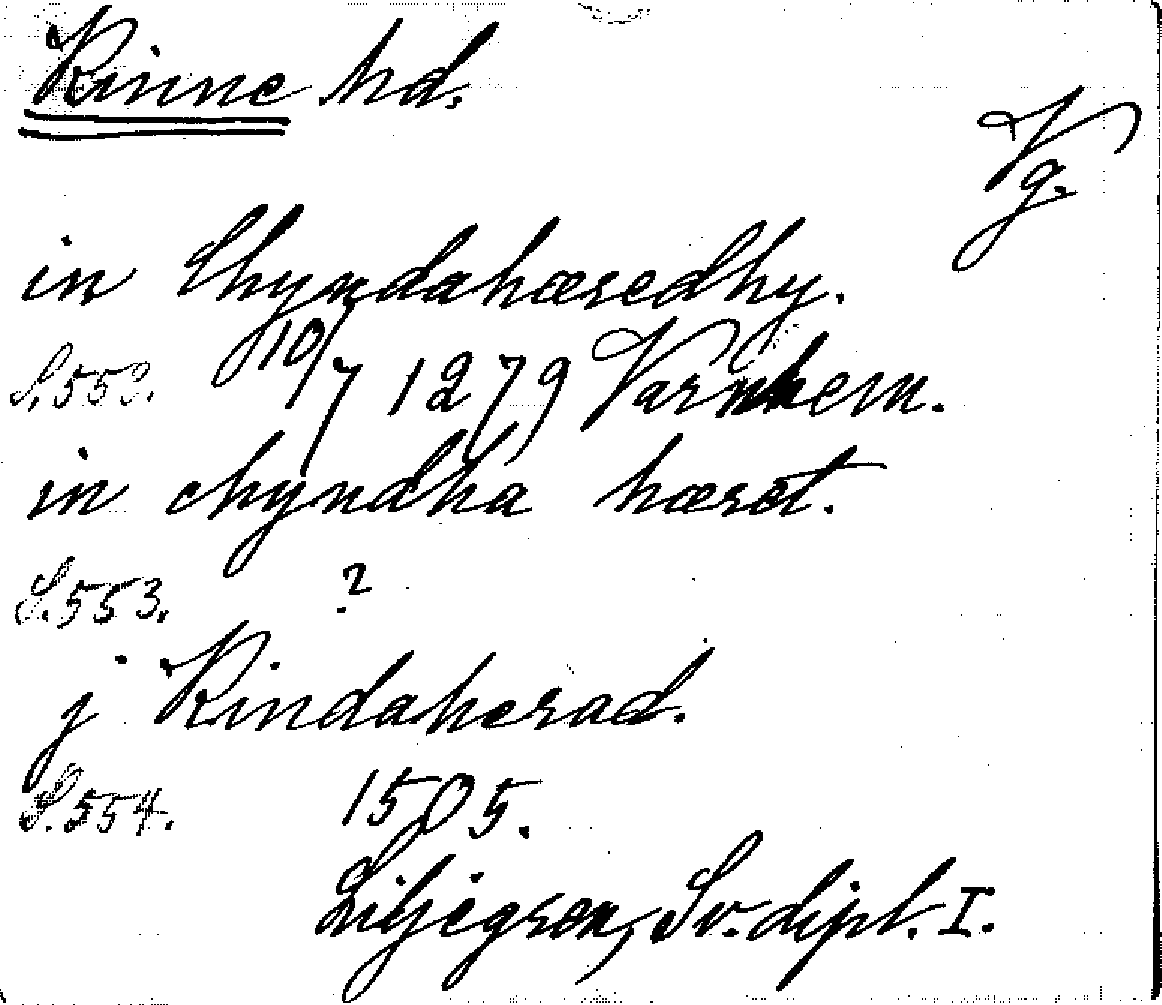 Kinne hd.
Vg.
in Chyndahæredhy.
S. 552. 10/7 1279 Varnhem.
in chyndha hæret.
S. 553. ?
j Kindaherad.
S. 554. 1505.
Liljegren, Sv. dipl. I.